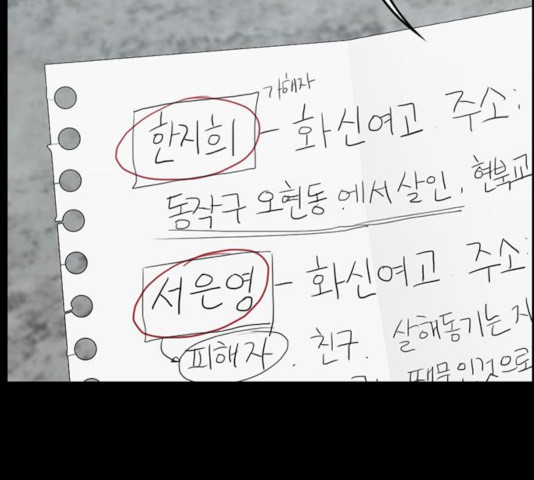 가해자
한지희 - 화신여고 주소:
동작구 오현동에서 살인. 현북교
서은영 - 화신여고 주소
피해자. 친구. 살해동기는 지
때문인것으로